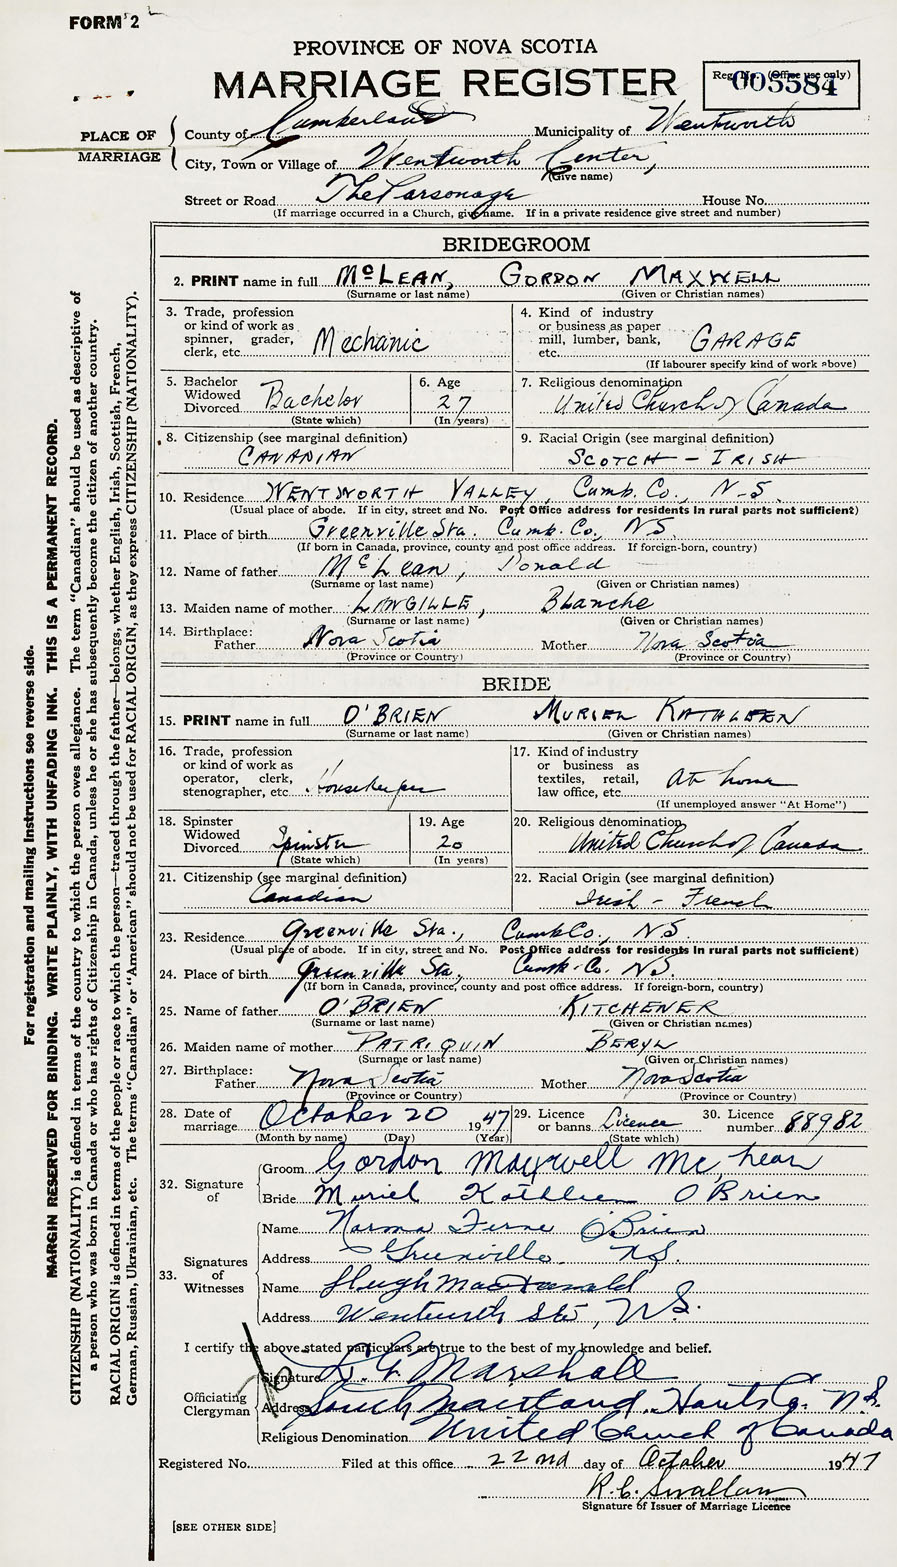 FORM 2
PROVINCE OF NOVA SCOTIA
MARRIAGE REGISTER
Reg. No. (Office use only)
005584
PLACE OF MARRIAGE
County of Cumberland Municipality of Wentworth
City, Town or Village of Wentworth Center,
(Give name)
Street or Road The Parsonage House No.
(If marriage occurred in a Church, give name. If in a private residence give street and number)
BRIDEGROOM
2. PRINT name in full McLEAN, GORDON MAXWELL
(Surname or last name) (Given or Christian names)
3. Trade, profession or kind of work as spinner, grader, clerk, etc. Mechanic
4. Kind of industry or business as paper mill, lumber, bank, etc. GARAGE
(If labourer specify kind of work above)
5. Bachelor Widowed Divorced Bachelor
(State which)
6. Age 27
(In years)
7. Religious denomination United Church of Canada
8. Citizenship (see marginal definition) CANADIAN
9. Racial Origin (see marginal definition) SCOTCH - IRISH
10. Residence WENTWORTH VALLEY, Cumb. Co., N-S.
(Usual place of abode. If in city, street and No. Post Office address for residents in rural parts not sufficient)
11. Place of birth Greenville Sta. Cumb. Co., NS.
(If born in Canada, province, county and post office address. If foreign-born, country)
12. Name of father McLean, Donald
(Surname or last name) (Given or Christian names)
13. Maiden name of mother LANGILLE, Blanche
(Surname or last name) (Given or Christian names)
14. Birthplace: Father Nova Scotia Mother Nova Scotia
(Province or Country) (Province or Country)
BRIDE
15. PRINT name in full O'BRIEN MURIEL KATHLEEN
(Surname or last name) (Given or Christian names)
16. Trade, profession or kind of work as operator, clerk, stenographer, etc. Housekeeper
17. Kind of industry or business as textiles, retail, law office, etc. At home
(If unemployed answer "At Home")
18. Spinster Widowed Divorced Spinster
(State which)
19. Age 20
(In years)
20. Religious denomination United Church of Canada
21. Citizenship (see marginal definition) Canadian
22. Racial Origin (see marginal definition) Irish - French
23. Residence Greenville Sta., Cumb Co., N.S.
(Usual place of abode. If in city, street and No. Post Office address for residents in rural parts not sufficient)
24. Place of birth Greenville Sta., Cumb. Co. N.S.
(If born in Canada, province, county and post office address. If foreign-born, country)
25. Name of father O'BRIEN KITCHENER
(Surname or last name) (Given or Christian names)
26. Maiden name of mother PATRIQUIN BERYL
(Surname or last name) (Given or Christian names)
27. Birthplace: Father Nova Scotia Mother Nova Scotia
(Province or Country) (Province or Country)
28. Date of marriage October 20 1947
(Month by name) (Day) (Year)
29. Licence or banns Licence
(State which)
30. Licence number 88982
32. Signature of
Groom Gordon Maxwell McLean
Bride Muriel Kathleen O'Brien
33. Signatures of Witnesses
Name Norma Ferne O'Brien
Address Greenville N.S.
Name Hugh MacDonald
Address Wentworth Sta, N.S.
I certify the above stated particulars are true to the best of my knowledge and belief.
Officiating Clergyman
Signature Marshall
Address South Maitland, Hants Co. N.S.
Religious Denomination United Church of Canada
Registered No. Filed at this office 22nd day of October 1947
R.C. Swallow
Signature of Issuer of Marriage Licence
[SEE OTHER SIDE]
For registration and mailing instructions see reverse side.
MARGIN RESERVED FOR BINDING. WRITE PLAINLY, WITH UNFADING INK. THIS IS A PERMANENT RECORD.
CITIZENSHIP (NATIONALITY) is defined in terms of the country to which the person owes allegiance. The term "Canadian" should be used as descriptive of
a person who was born in Canada or who has rights of Citizenship in Canada, unless he or she has subsequently become the citizen of another country.
RACIAL ORIGIN is defined in terms of the people or race to which the person—traced through the father—belongs, whether English, Irish, Scottish, French,
German, Russian, Ukrainian, etc. The terms "Canadian" or "American" should not be used for RACIAL ORIGIN, as they express CITIZENSHIP (NATIONALITY).